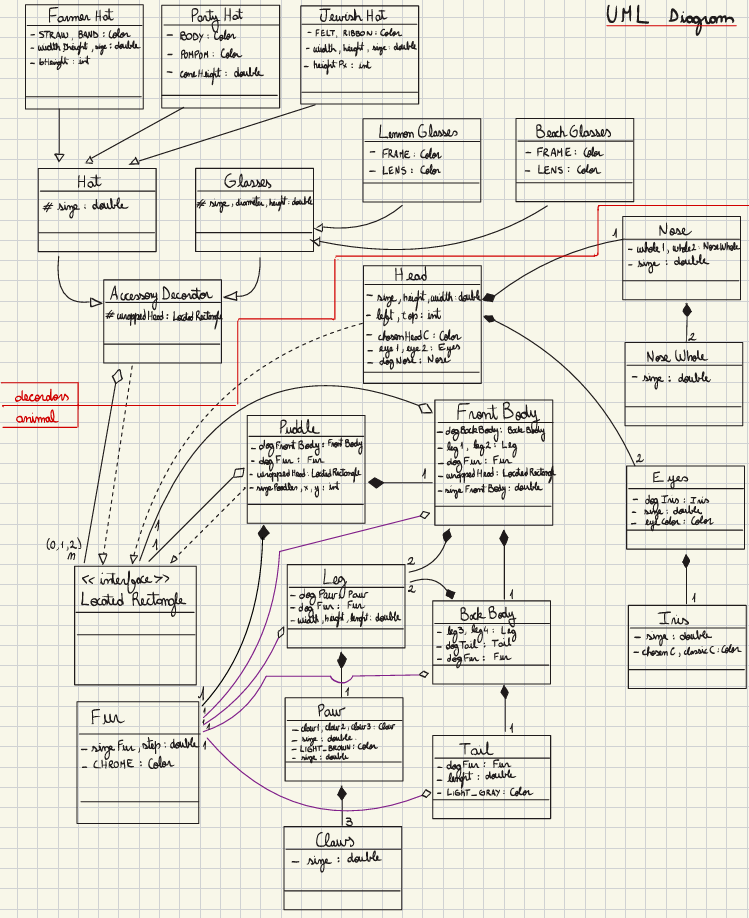 UML Diagram
Farmer Hat
- STRAW, BAND : Color
- width, height, size : double
- bHeight : int
Party Hat
- BODY : Color
- POMPOM : Color
- coneHeight : double
Jewish Hat
- FELT, RIBBON : Color
- width, height, size : double
- heightPx : int
Lennon Glasses
- FRAME : Color
- LENS : Color
Beach Glasses
- FRAME : Color
- LENS : Color
Hat
# size : double
Glasses
# size, diameter, height : double
Nose
- whole1, whole2 : NoseWhole
- size : double
1
Accessory Decorator
# wrappedHead : Located Rectangle
Head
- size, height, width : double
- left, top : int
- chosenHeadC : Color
- eye1, eye2 : Eyes
- dogNose : Nose
2
Nose Whole
- size : double
decorators
animal
Puddle
- dogFrontBody : FrontBody
- dogFur : Fur
- wrappedHead : LocatedRectangle
- sizePoodles, x, y : int
1
Front Body
- dogBackBody : BackBody
- leg1, leg2 : Leg
- dogFur : Fur
- wrappedHead : LocatedRectangle
- sizeFrontBody : double
2
Eyes
- dogIris : Iris
- size : double
- eyeColor : Color
1
1
(0,1,2)
n
<< interface >>
Located Rectangle
Leg
- dogPaw : Paw
- dogFur : Fur
- width, height, lenght : double
2
2
1
Back Body
- leg3, leg4 : Leg
- dogTail : Tail
- dogFur : Fur
1
Iris
- size : double
- chosenC, classicC : Color
1
1
1
1
1
Fur
- sizeFur, step : double
- CHROME : Color
1
Paw
- claw1, claw2, claw3 : Claw
- size : double
- LIGHT_BROWN : Color
- size : double
1
Tail
- dogFur : Fur
- lenght : double
- LIGHT_GRAY : Color
3
Claws
- size : double